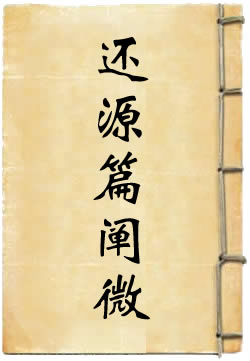 还源篇阐微